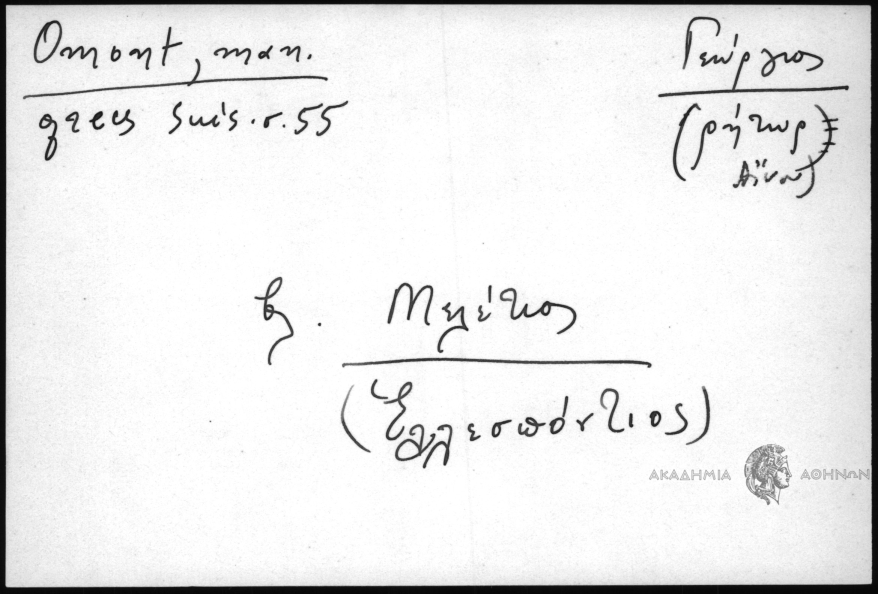 Omont, man.
grecs Suis. σ. 55
Γεώργιος
(ρήτωρ)
Αἴνου)
βλ. Μελέτιος
(Ἑλλεσπόντιος)
ΑΚΑΔΗΜΙΑ ΑΘΗΝΩΝ